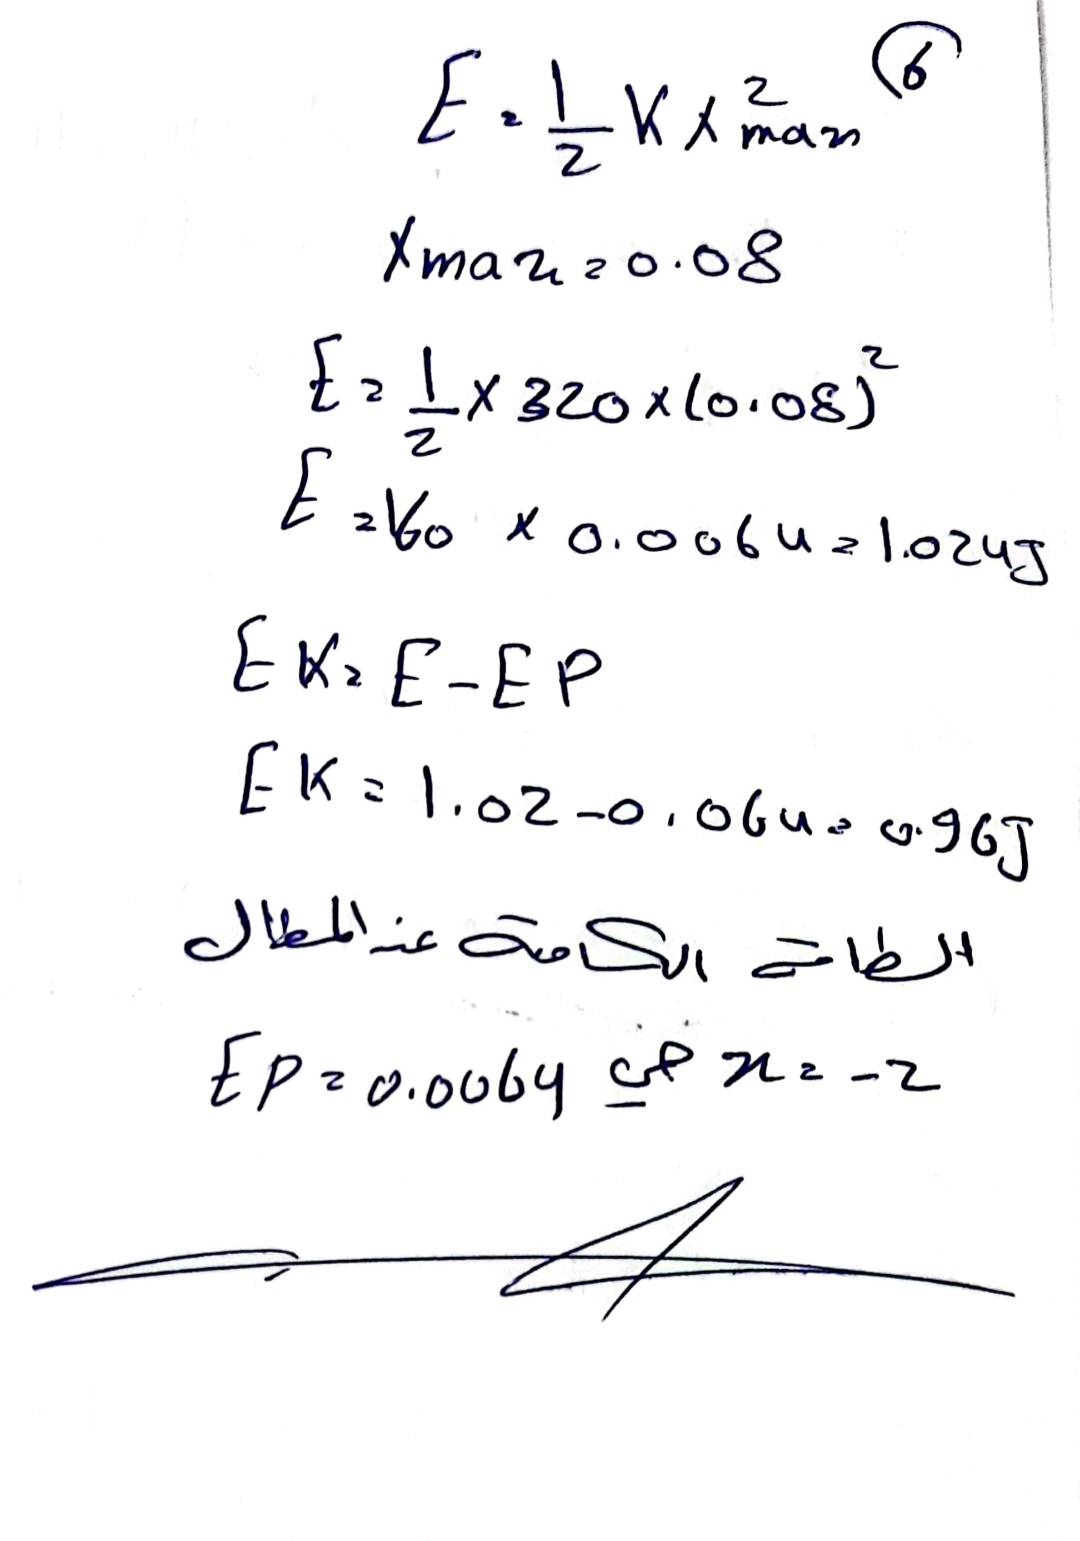 6
E = 1/2 K X²max
Xmax = 0.08
E = 1/2 × 320 × (0.08)²
E = 160 × 0.0064 = 1.024J
EK = E - EP
EK = 1.02 - 0.064 = 0.96J
الطاقة الكامنة عند المطال
EP = 0.0064 في x = -2